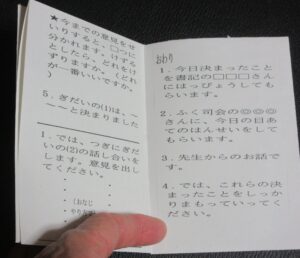 ★今までの意見をせ
いりすると、□つに
分かれます。けずる
としたら、どれをけ
ずりますか。(どれ
が一番いいですか。
)
5.ぎだいの(1)は、~
~~と決まりました
1.では、つぎにぎだ
いの(2)の話し合いを
します。意見を出し
てください。
・
・
・
(おなじ
やり方で)
おわり
1.今日決まったこと
を書記の□□□さん
にはっぴょうしても
らいます。
2.ふく司会の◎◎◎
さんに、今日の目あ
てのはんせいをして
もらいます。
3.先生からのお話で
す。
4.では、これらの決
まったことをしっか
りまもっていってく
ださい。